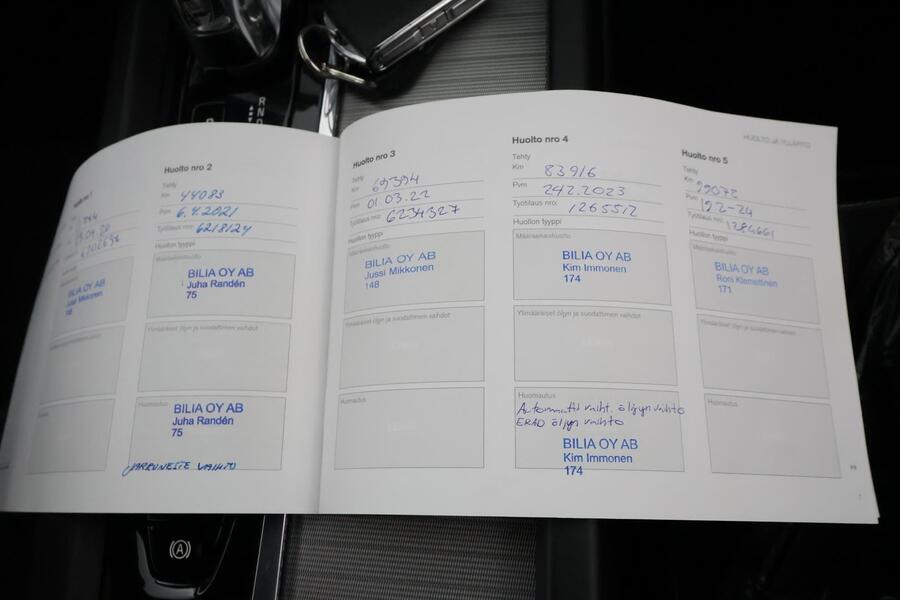 HUOLTO JA YLLÄPITO
Huolto nro 2
Tehty
Km 44083
Pvm 6.4.2021
Työtilaus nro: 6218124
Huollon tyyppi
Määräaikaishuolto
BILIA OY AB
Juha Randén
75
Ylimääräiset öljyn ja suodattimen vaihdot
Huomautus
BILIA OY AB
Juha Randén
75
JARRUNESTE VAIHTO
Huolto nro 3
Tehty
Km 65394
Pvm 01 03.22
Työtilaus nro: 6234327
Huollon tyyppi
Määräaikaishuolto
BILIA OY AB
Jussi Mikkonen
148
Ylimääräiset öljyn ja suodattimen vaihdot
Huomautus
Huolto nro 4
Tehty
Km 83916
Pvm 24.2.2023
Työtilaus nro: 1265512
Huollon tyyppi
Määräaikaishuolto
BILIA OY AB
Kim Immonen
174
Ylimääräiset öljyn ja suodattimen vaihdot
Huomautus
Automaatti vaiht. öljyn vaihto
ERAD öljyn vaihto
BILIA OY AB
Kim Immonen
174
Huolto nro 5
Tehty
Km
Pvm 19.2-24
Työtilaus nro: 1284661
Huollon tyyppi
Määräaikaishuolto
BILIA OY AB
Roni Klemettinen
171
Ylimääräiset öljyn ja suodattimen vaihdot
Huomautus
BILIA OY AB
Jussi Mikkonen
R
N
D
A